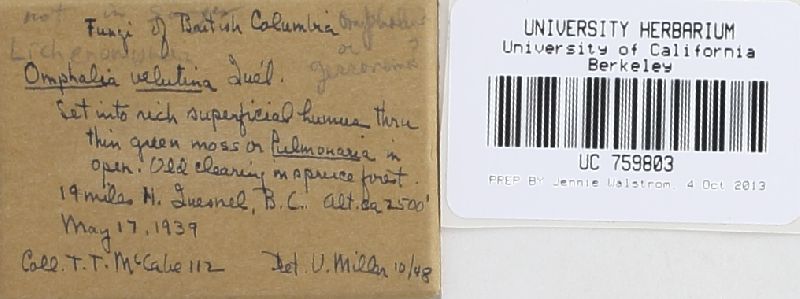 not in
Fungi of British Columbia
Omphalina
or
Gerronema?
Lichenomphalia
Omphalia velutina Quél.
Set into rich superficial humus thru
thin green moss or Pulmonaria in
open. Old clearing in spruce forest.
19 miles N. Quesnel, B.C. Alt. ca 2500'
May 17, 1939
Coll. T. T. McCabe 112 Det. V. Miller 10/48
UNIVERSITY HERBARIUM
University of California
Berkeley
UC 759803
PREP BY Jennie Walstrom, 4 Oct 2013